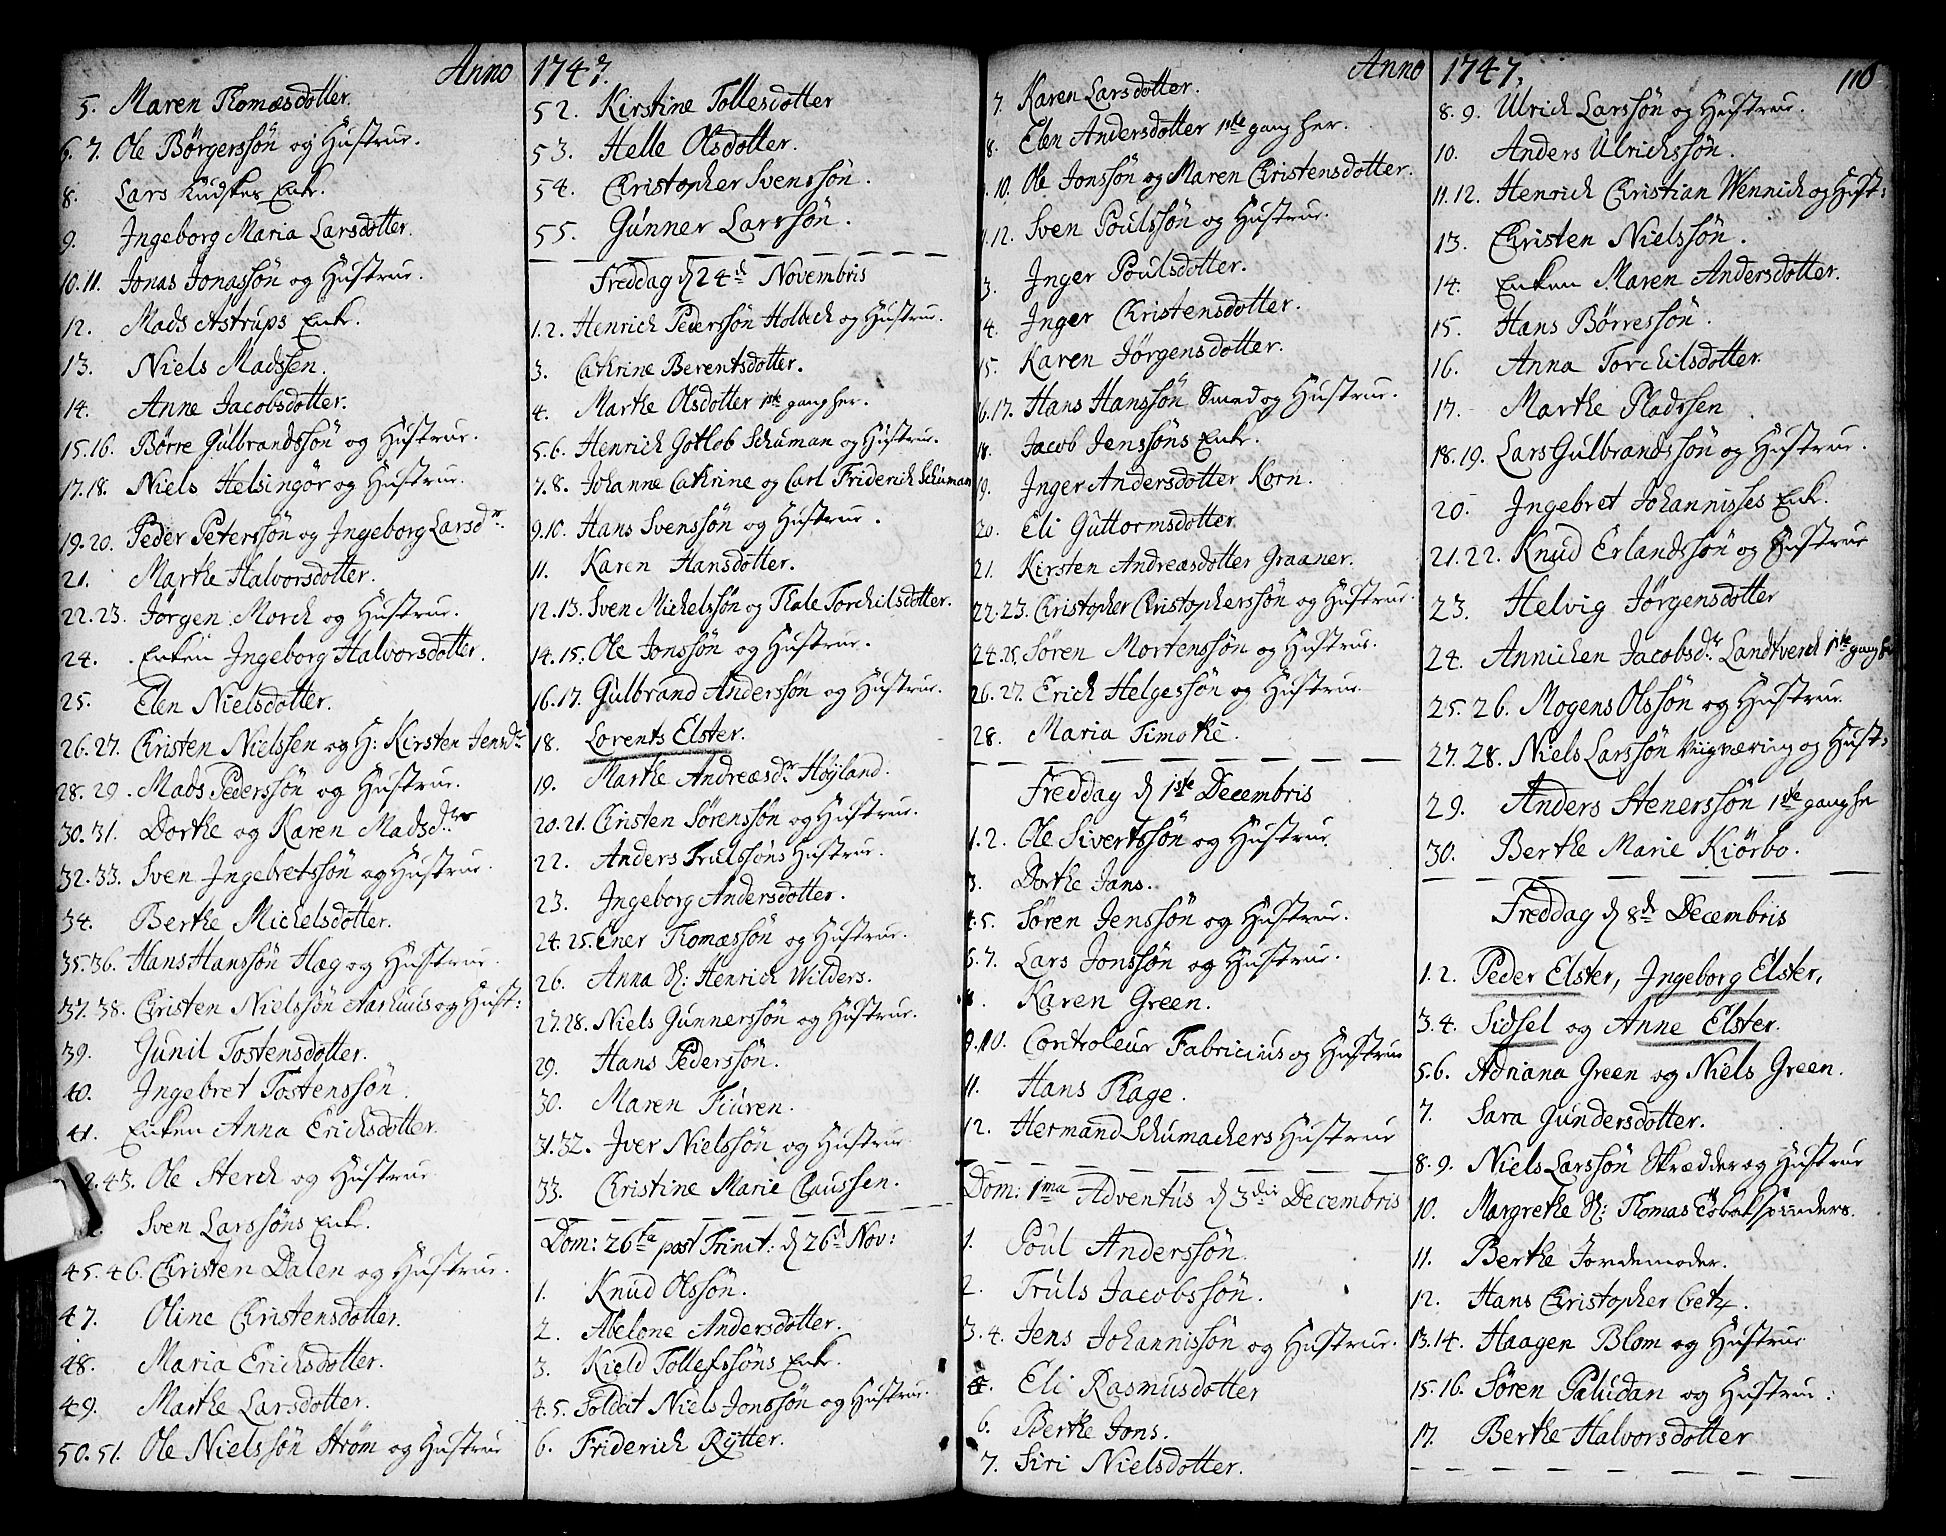 Anno 1747.
5. Maren Thomæsdotter.
6. 7. Ole Børgerssøn og Hustrue.
8. Lars Kudskes Enk.
9. Ingeborg Maria Larsdotter.
10.11. Jonas Jonassøn og Hustrue.
12. Mads Astrups Enk.
13. Niels Madssen.
14. Anne Jacobsdotter.
15.16. Børre Gulbrandssøn og Hustrue.
17.18. Niels Helsingør og Hustrue.
19.20. Peder Peterssøn og Ingeborg Larsdr.
21. Marthe Halvorsdotter.
22.23. Jørgen Morch og Hustrue.
24. Enken Ingeborg Halvorsdotter.
25. Elen Nielsdotter.
26.27. Christen Nielssen og H: Kirsten Jensdr
28.29. Mads Pederssøn og Hustrue.
30.31. Dorthe og Karen Madsdtres
32.33. Sven Ingebretssøn og Hustrue.
34. Berthe Michelsdotter.
35.36. Hans Hanssøn Hæg og Hustrue.
37.38. Christen Nielssøn Aarhuus og Hust:
39. Gunil Tostensdotter.
40. Ingebret Tostenssøn.
41. Enken Anna Erichsdotter
2.43. Ole Sterch og Hustrue
Sven Larssøns Enk.
45.46. Christen Dalen og Hustrue.
47. Oline Christensdotter.
48. Maria Erichsdotter.
49. Marthe Larsdotter.
50.51. Ole Nielssøn Strøm og Hustrue
52. Kirstine Tollesdotter
53. Helle Olsdotter.
54. Christopher Svenssøn.
55. Gunner Larssøn.
Freddag d 24d Novembris
1.2. Henrich Pederssøn Holbech og Hustrue.
3. Cathrine Berentsdotter.
4. Marthe Olsdotter 1ste gang her.
5.6. Henrich Gotlob Schuman og Hustrue.
7.8. Johanne Cathrine og Carl Friderich Schuman
9.10. Hans Svenssøn og Hustrue.
11. Karen Hansdotter.
12.13. Sven Michelssøn og Thale Torchilsdotter.
14.15. Ole Jonssøn og Hustrue.
16.17. Gulbrand Anderssøn og Hustrue.
18. Lorents Elster.
19. Marthe Andreæsdr Høyland.
20.21. Christen Sørenssøn og Hustrue.
22. Anders Trulssøns Hustrue.
23. Ingeborg Andersdotter.
24.25. Ener Thomæssøn og Hustrue.
26. Anna Sl: Henrich Wilders.
27.28. Niels Gunnerssøn og Hustrue.
29. Hans Pederssøn.
30. Maren Fiuren.
31.32. Iver Nielssøn og Hustrue
33. Christine Marie Claussen.
Dom: 26ta post Trinit: d 26d Nov:
1. Knud Olssøn.
2. Abelone Andersdotter.
3. Kield Tollefssøns Enk.
4.5. Soldat Niels Jonssøn og Hustrue.
6. Friderich Rytter.
Anno 1747. 110
7. Karen Larsdotter.
8. Elen Andersdotter 1ste gang her.
10. Ole Jonssøn og Maren Christensdotter.
12. Sven Poulssøn og Hustrue.
3. Inger Poulsdotter.
4. Inger Christensdotter.
15. Karen Jørgensdotter.
16.17. Hans Hanssøn Smed og Hustrue.
18. Jacob Jenssøns Enk.
19. Inger Andersdotter Korn.
20. Eli Guttormsdotter
21. Kirsten Andreæsdotter Graaner.
22.23. Christopher Christopherssøn og Hustrue.
24.25. Søren Mortenssøn og Hustrue.
26.27. Erich Helgessøn og Hustrue.
28. Maria Timothe.
Freddag d 1ste Decembris
1.2. Ole Sivertssøn og Hustrue
3. Dorthe Jans.
4.5. Søren Jenssøn og Hustrue.
6.7. Lars Jonssøn og Hustrue.
Karen Green.
9.10. Controleur Fabricius og Hustrue
11. Hans Plage.
12. Hermand Schumachers Hustrue
Dom: 1ma Adventus d 3die Decembris
1. Poul Anderssøn.
2. Truls Jacobssøn.
3.4. Jens Johannissøn og Hustrue.
Eli Rasmusdotter
6. Berthe Jons.
7. Siri Nielsdotter.
8.9. Ulrich Larssøn og Hustrue.
10. Anders Ulrichssøn.
11.12. Henrich Christian Wennich og Hust:
13. Christen Nielssøn.
14. Enken Maren Andersdotter.
15. Hans Børressøn.
16. Anna Torchilsdotter
17. Marthe Pladssen
18.19. Lars Gulbrandssøn og Hustrue.
20. Ingebret Johannisses Enk.
21.22. Knud Erlandssøn og Hustrue
23. Helvig Jørgensdotter
24. Annichen Jacobsdr Landtverch 1ste gang
25.26. Mogens Olssøn og Hustrue
27.28. Niels Larssøn Viigværing og Hust:
29. Anders Stenerssøn 1ste gang he
30. Berthe Marie Kiörbo.
Freddag d 8d Decembris
1.2. Peder Elster, Ingeborg Elster,
3.4. Sidsel og Anne Elster.
5.6. Adriana Green og Niels Green.
7. Sara Gundersdotter.
8.9. Niels Larssøn Skrædder og Hustrue
10. Margrethe Sl: Thomas Tobakspinders.
11. Berthe Jordemoder.
12. Hans Christopher Cretz.
13.14. Haagen Blom og Hustrue
15.16. Søren Paludan og Hustrue:
17. Berthe Halvorsdotter